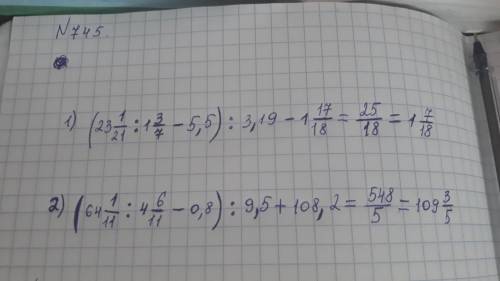 N 745.
1) (23 1/21 : 1 3/7 - 5,5) : 3,19 - 1 17/18 = 25/18 = 1 7/18
2) (64 1/11 : 4 6/11 - 0,8) : 9,5 + 108,2 = 548/5 = 109 3/5